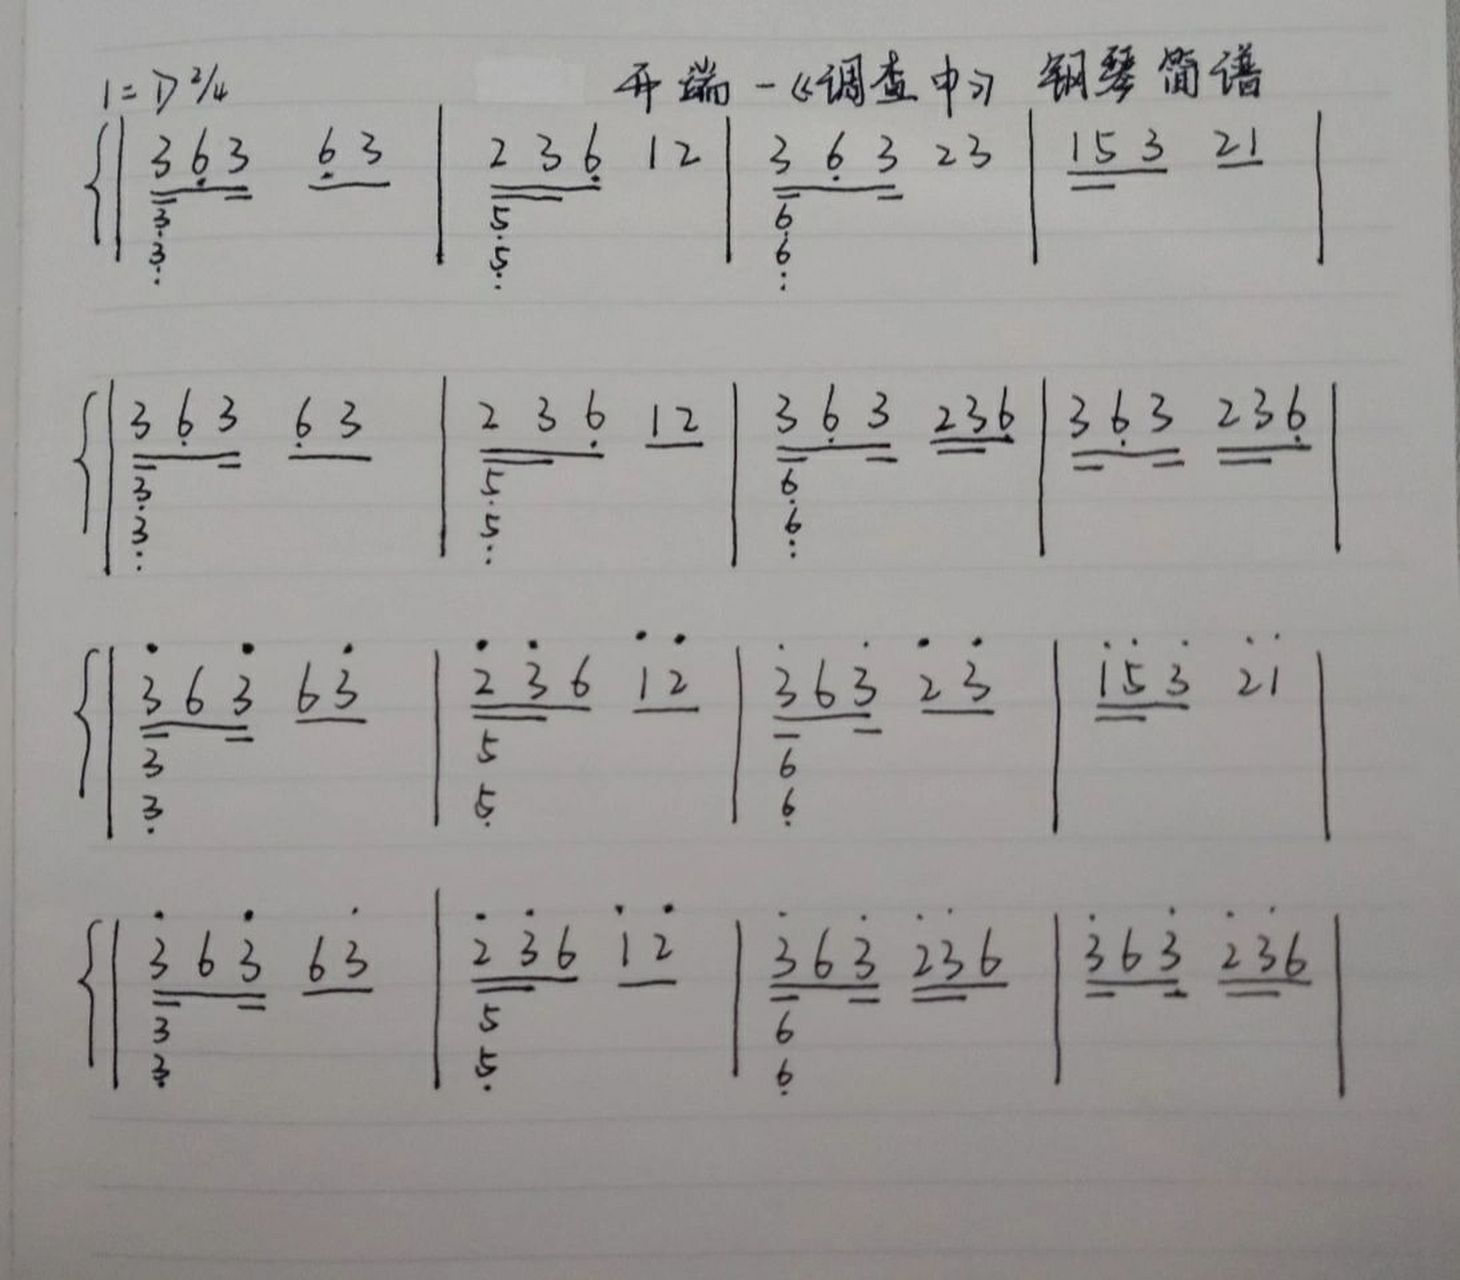 1=D 2/4 开端-《调查中》 钢琴简谱
3 6̣ 3 6̣ 3 | 2 3 6̣ 1 2 | 3 6̣ 3 2 3 | 1 5 3 2 1 |
3̣ 5̣ 6̣
3̤ 5̤ 6̤
3 6̣ 3 6̣ 3 | 2 3 6̣ 1 2 | 3 6̣ 3 2 3 6̣ | 3 6̣ 3 2 3 6̣ |
3̣ 5̣ 6̣
3̤ 5̤ 6̤
3̇ 6 3̇ 6 3̇ | 2̇ 3̇ 6 1̇ 2̇ | 3̇ 6 3̇ 2̇ 3̇ | 1̇ 5̇ 3̇ 2̇ 1̇ |
3 5 6
3̣ 5̣ 6̣
3̇ 6 3̇ 6 3̇ | 2̇ 3̇ 6 1̇ 2̇ | 3̇ 6 3̇ 2̇ 3̇ 6 | 3̇ 6 3̇ 2̇ 3̇ 6 |
3 5 6
3̣ 5̣ 6̣